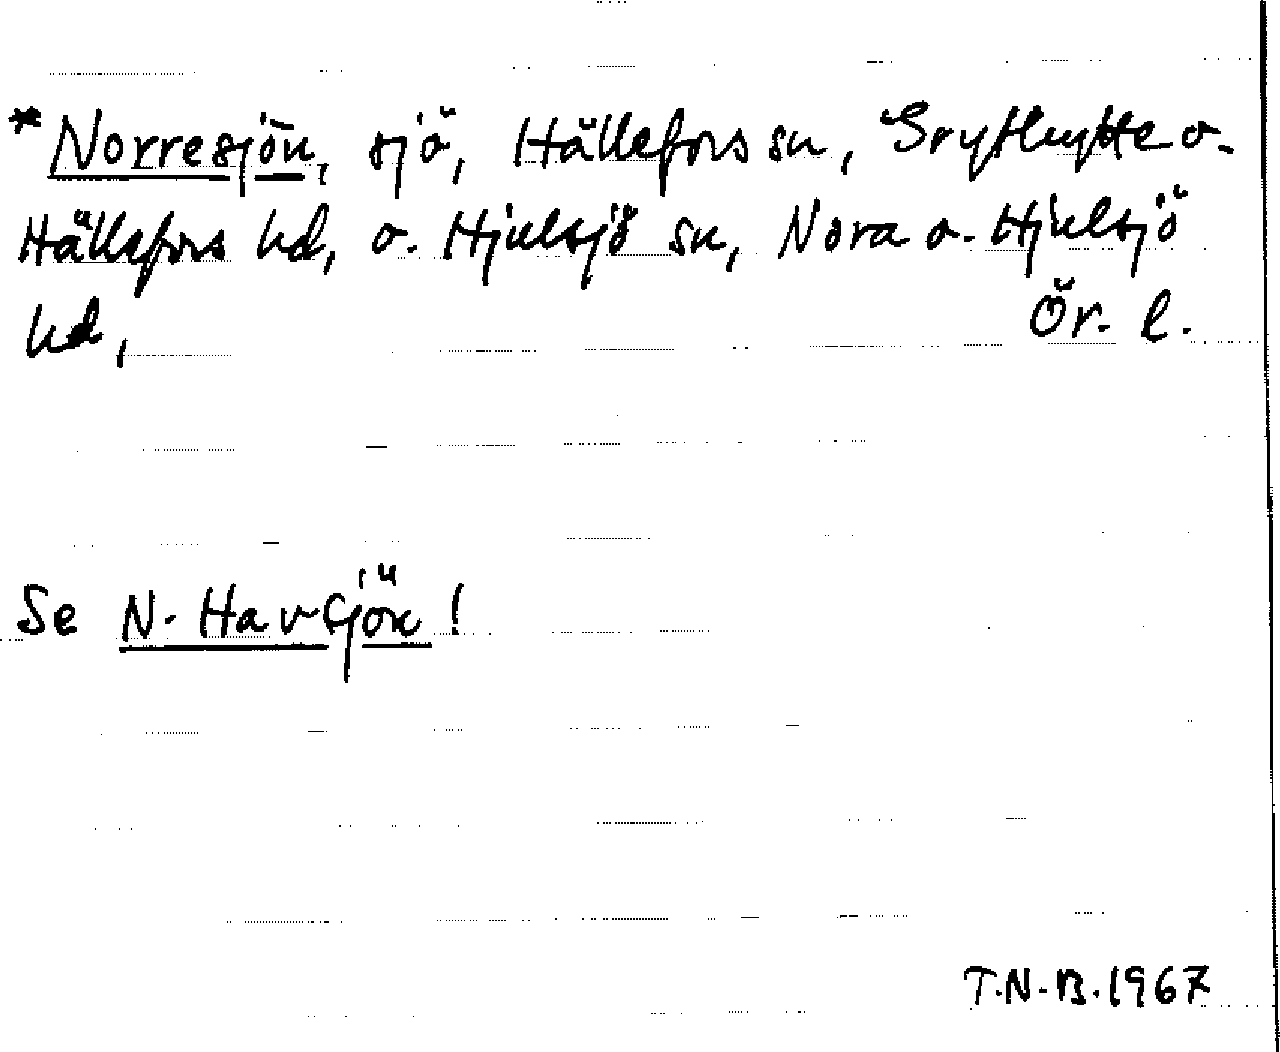 *Norresjön, sjö, Hällefors sn, Grythytte o.
Hällefors hd, o. Hjulsjö sn, Nora o. Hjulsjö
hd, Ör. l.
Se N. Havsjön!
T.N-B. 1967